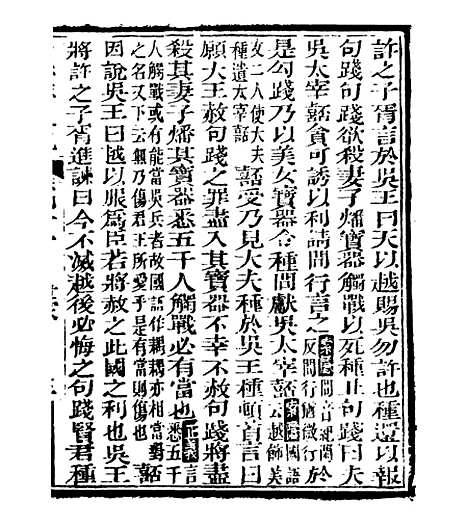 許之子胥言於吳王曰天以越賜吳勿許也種還以報
句踐句踐欲殺妻子燔寶器觸戰以死種止句踐曰夫
吳太宰嚭貪可誘以利請間行言之索隱間音紀閑反間行猶微行於
是勾踐乃以美女寶器令種間獻吳太宰嚭索隱國語云越飾美
女二人使大夫種遺太宰嚭嚭受乃見大夫種於吳王種頓首言曰
願大王赦句踐之罪盡入其寶器不幸不赦句踐將盡
殺其妻子燔其寶器悉五千人觸戰必有當也正義言悉五千
人觸戰或有能當吳兵者故國語作耦耦亦相當對之名又下云無乃傷君王所愛乎是有當則傷也嚭
因說吳王曰越以服爲臣若將赦之此國之利也吳王
將許之子胥進諫曰今不滅越後必悔之句踐賢君種